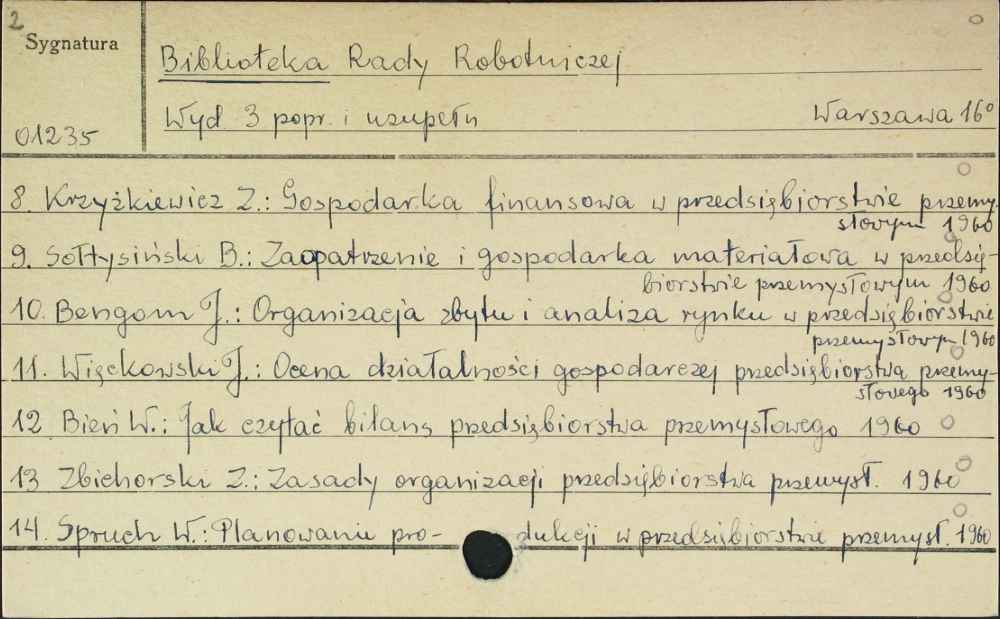 2
Sygnatura
Biblioteka Rady Robotniczej
Wyd. 3 popr. i uzupełn
Warszawa 16°
01235
8. Krzyżkiewicz Z.: Gospodarka finansowa w przedsiębiorstwie przemy-
słowym 1960
9. Sołtysiński B.: Zaopatrzenie i gospodarka materiałowa w przedsię-
biorstwie przemysłowym 1960
10. Bengom J.: Organizacja zbytu i analiza rynku w przedsiębiorstwie
przemysłowym 1960
11. Więckowski J.: Ocena działalności gospodarczej przedsiębiorstwa przemy-
słowego 1960
12 Bień W.: Jak czytać bilans przedsiębiorstwa przemysłowego 1960
13 Zbichorski Z.: Zasady organizacji przedsiębiorstwa przemysł. 1960
14. Spruch W.: Planowanie pro- dukcji w przedsiębiorstwie przemysł. 1960